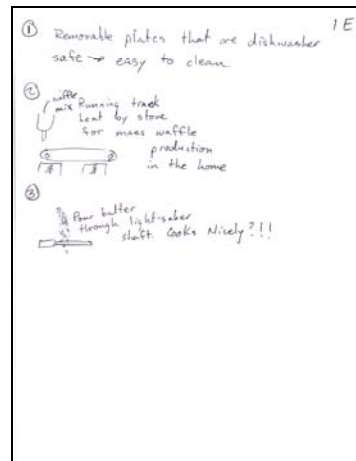 1E
① Removable plates that are dishwasher
safe → easy to clean
②
waffle
mix
Running track
heat by stove
for mass waffle
production
in the home
③
Pour batter
through light-saber
shaft. Cooks Nicely?!!!